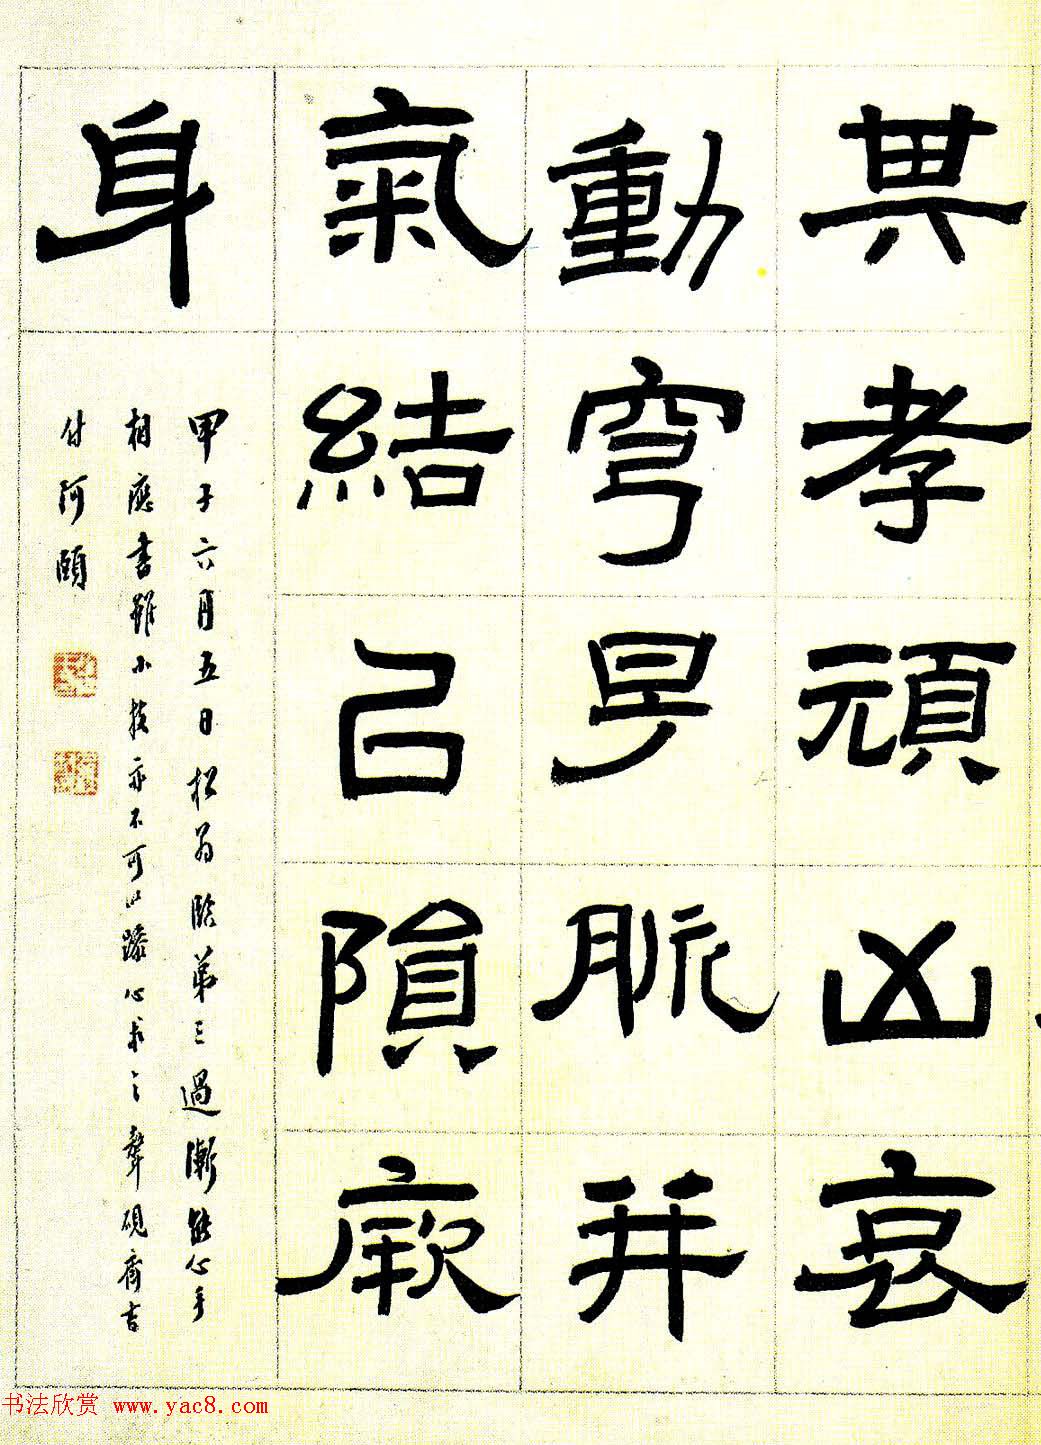 其孝頑凶哀
動穹脈并
氣結㠯隕厥
身
甲子六月五日松翁臨第三過漸能心手
相應書雖小技亦不可以躁心求之聲硯齋吉
付阿頤
书法欣赏 www.yac8.com